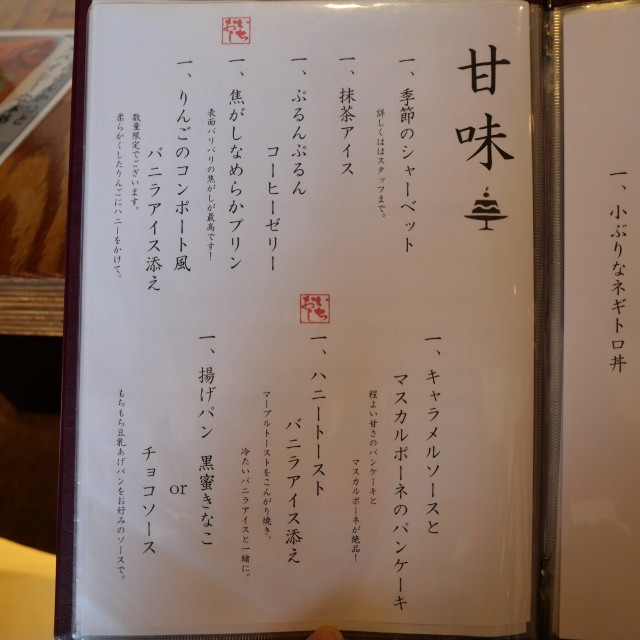 一、小ぶりなネギトロ丼
甘味
一、季節のシャーベット
詳しくはスタッフまで。
一、抹茶アイス
一、ぷるんぷるん
コーヒーゼリー
一、焦がしなめらかプリン
表面パリパリの焦がしが最高です!
一、りんごのコンポート風
バニラアイス添え
数量限定でございます。
柔らかくしたりんごにハニーをかけて。
一、キャラメルソースと
マスカルポーネのパンケーキ
程よい甘さのパンケーキと
マスカルポーネが絶品!
一、ハニートースト
バニラアイス添え
マーブルトーストをこんがり焼き、
冷たいバニラアイスと一緒に。
一、揚げパン 黒蜜きなこ
or
チョコソース
もちもち豆乳あげパンをお好みのソースで。